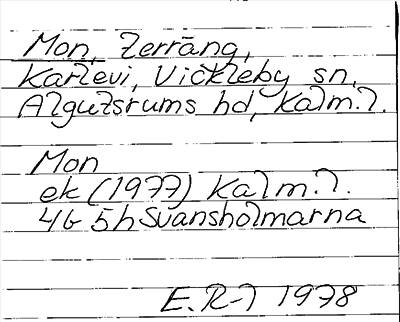 Mon, terräng,
Karlevi, Vickleby sn,
Algutsrums hd, Kalm. l.
Mon
ek (1977) Kalm. l.
4G 5h Svansholmarna
E.R-l 1978